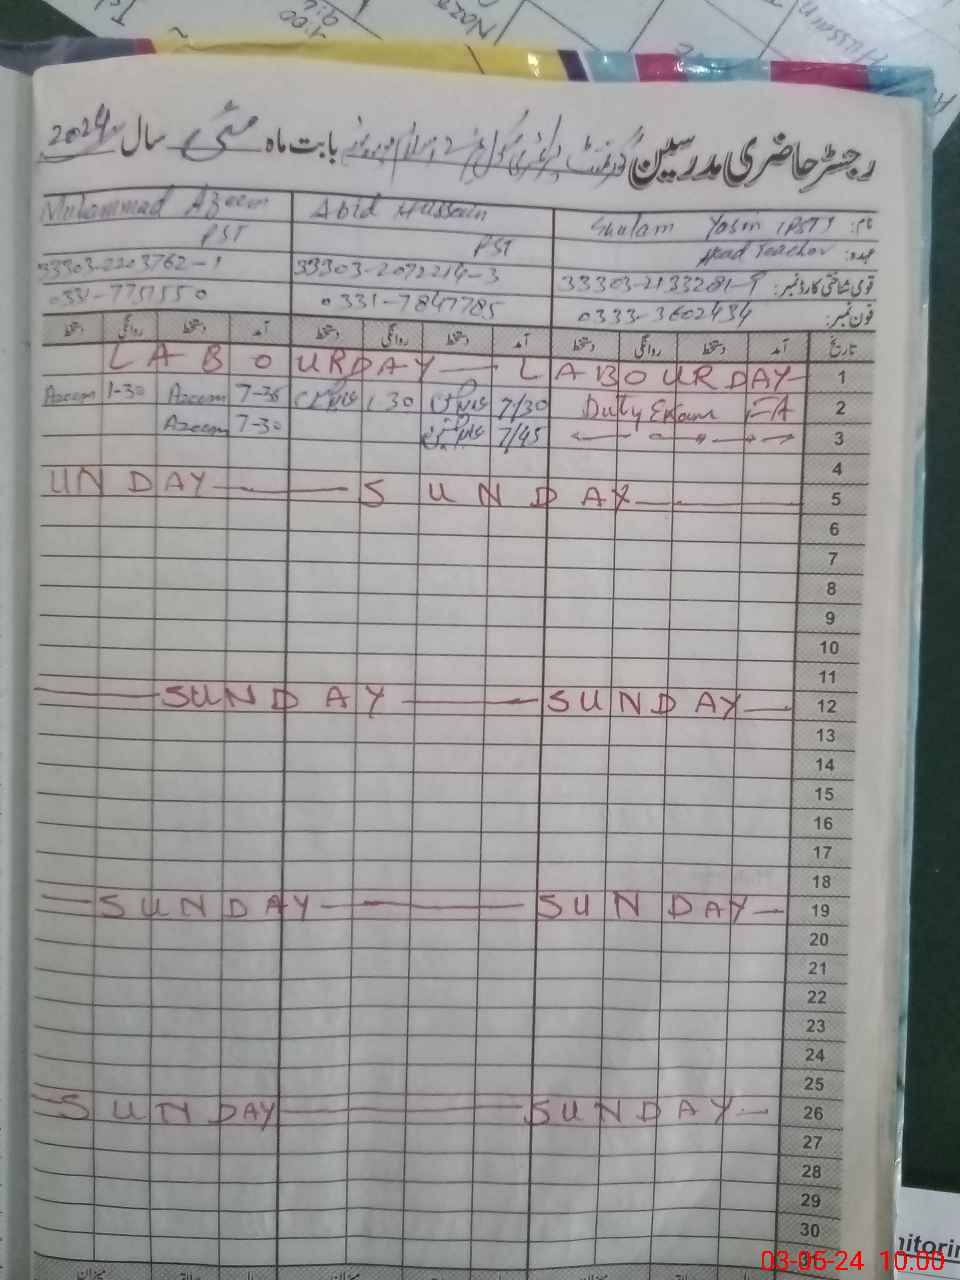 رجسٹر حاضری مدرسین گورنمنٹ پرائمری سکول بابت ماہ مئی سال 2024
نام: Ghulam Yasin (PST) Abid Hussain Muhammad Azeem
عہدہ: Head Teacher PST PST
قومی شناختی کارڈ نمبر: 33303-2133281-9 33303-2092214-3 33303-2203762-1
فون نمبر: 0333-3602434 0331-7847785 0331-7751550
تاریخ آمد دستخط روانگی دستخط آمد دستخط روانگی دستخط آمد دستخط روانگی دستخط
LABOURDAY LABOURDAY 1
Azeem 1-30 Azeem 7-35 1.30 7/30 Duty Exam 2
Azeem 7-30 7/45 3
4
UNDAY SUNDAY 5
6
7
8
9
10
11
SUNDAY SUNDAY 12
13
14
15
16
17
18
SUNDAY SUNDAY 19
20
21
22
23
24
25
SUNDAY SUNDAY 26
27
28
29
30
31
nitorin
03-05-24 10:00